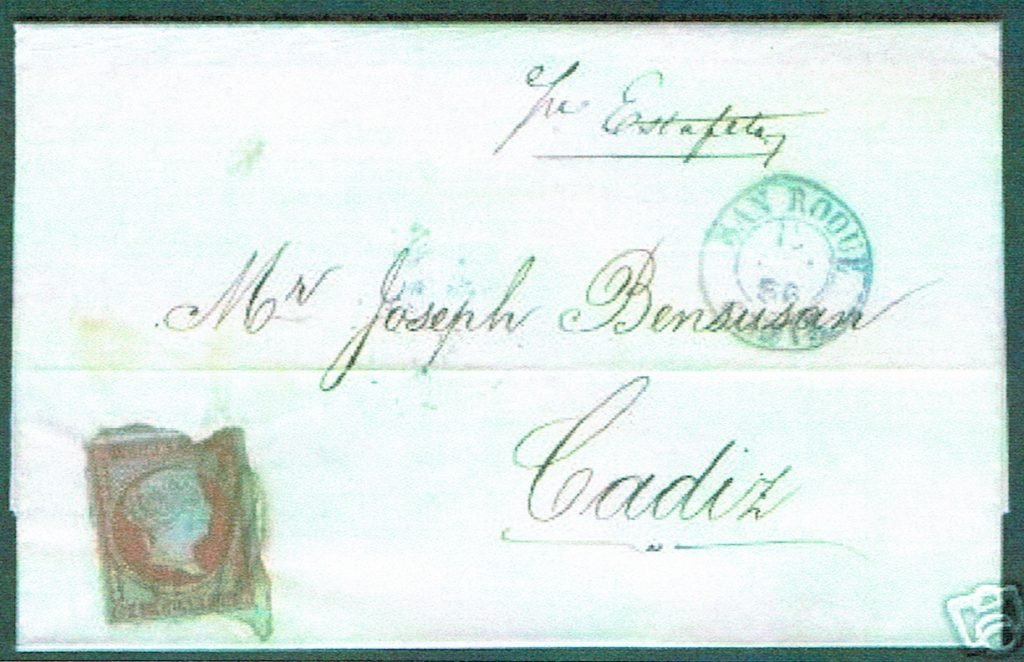 Per Estafeta
SAN ROQUE
Mr Joseph Bensusan
Cadiz